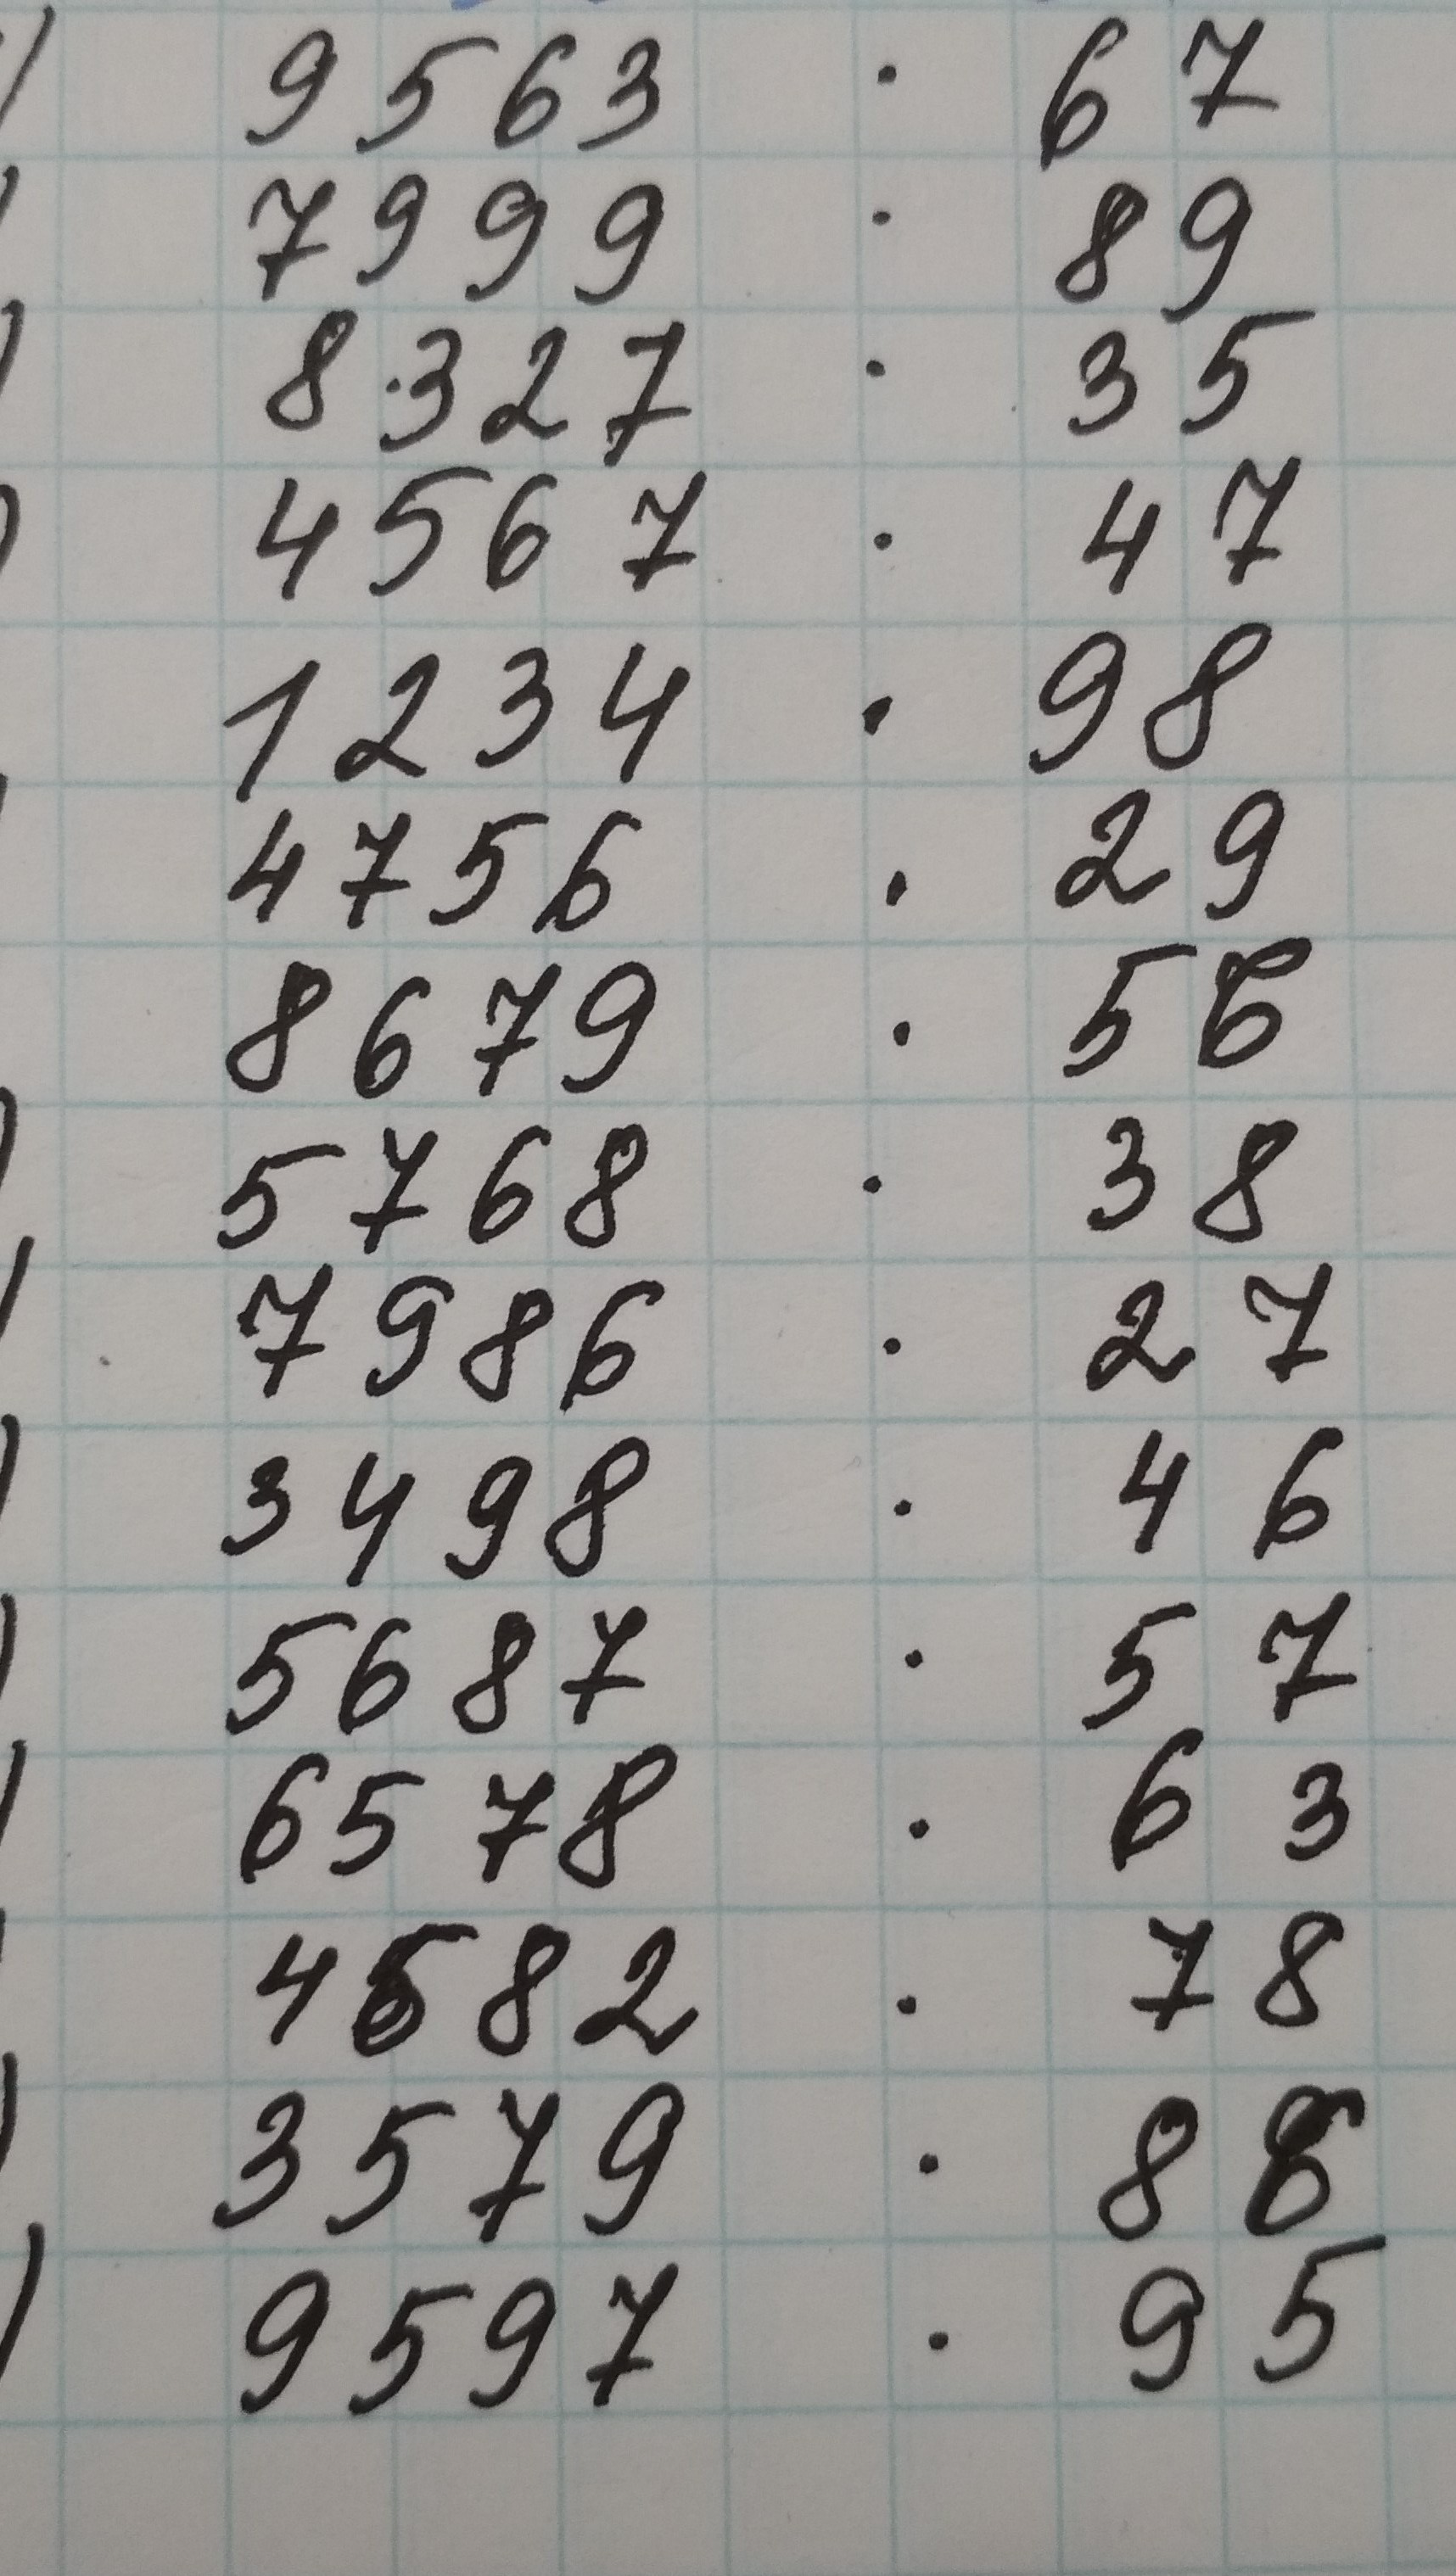 ) 9563 · 67
) 7999 · 89
) 8327 · 35
) 4567 · 47
1234 · 98
) 4756 · 29
8679 · 56
) 5768 · 38
) 7986 · 27
) 3498 · 46
) 5687 · 57
) 6578 · 63
) 4582 · 78
) 3579 · 86
) 9597 · 95